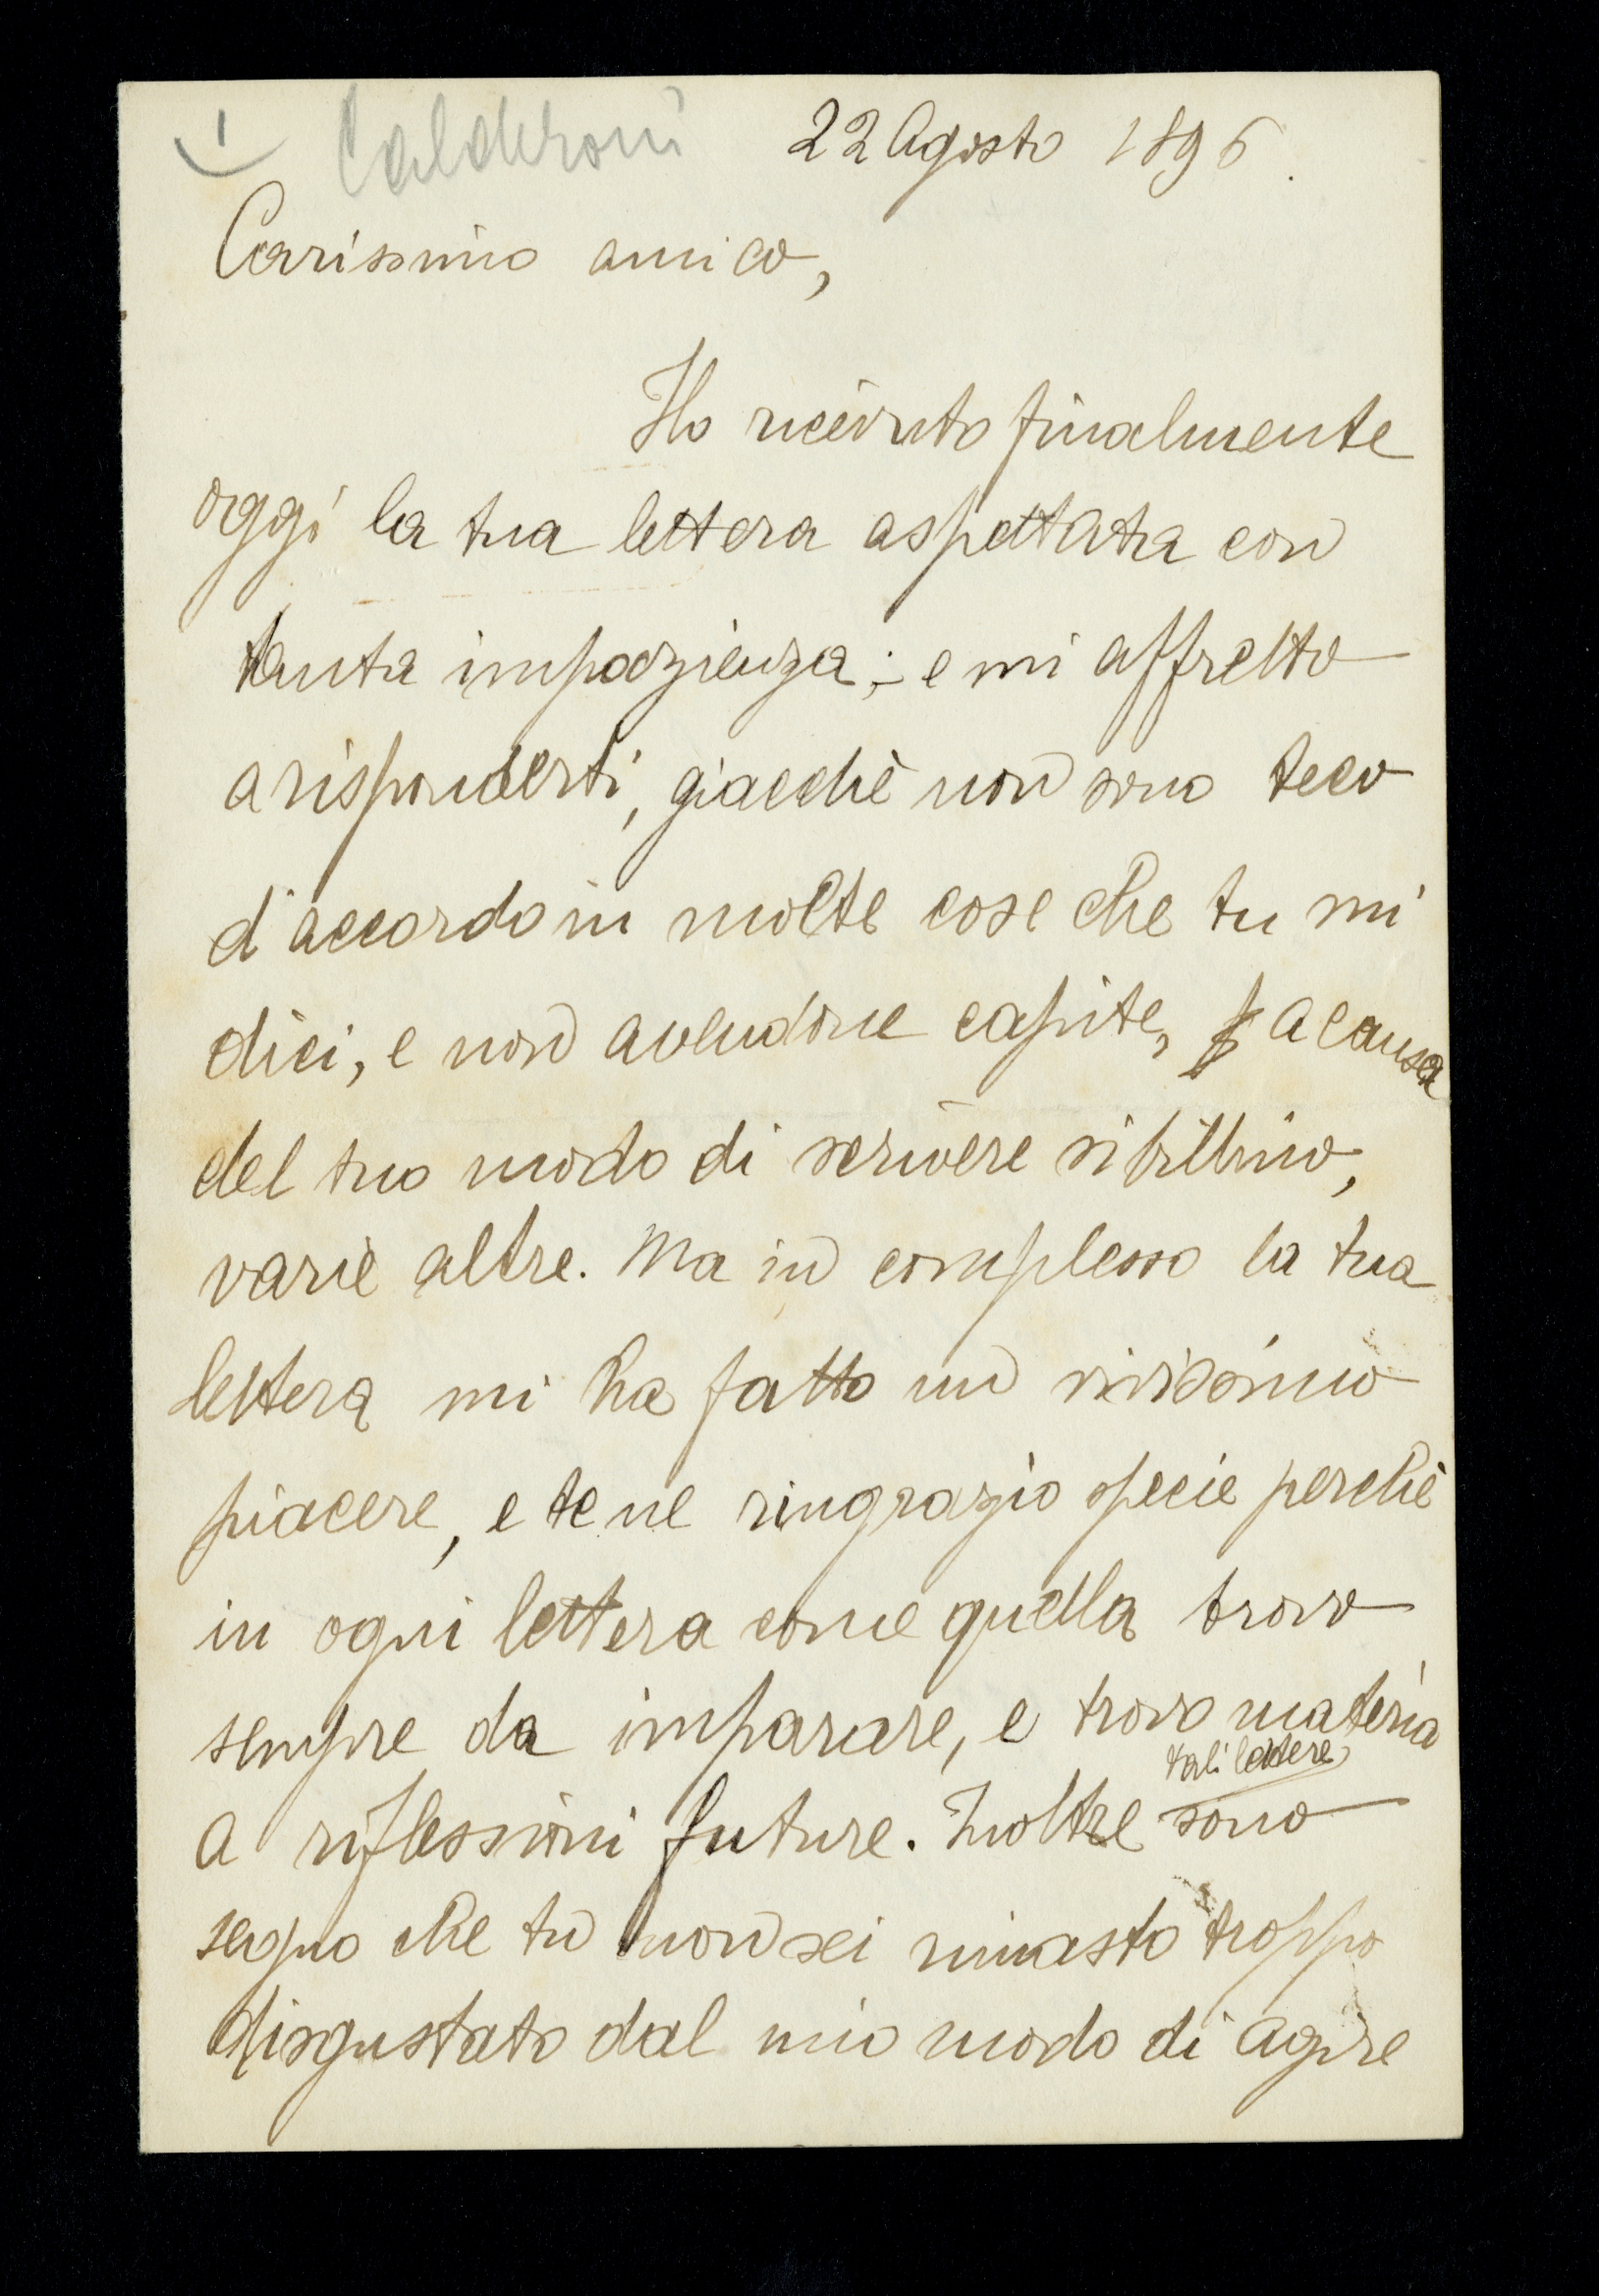 1 Calderoni 22 Agosto 1896.
Carissimo amico,
Ho ricevuto finalmente
oggi la tua lettera aspettata con
tanta impazienza; e mi affretto
a risponderti, giacchè non sono teco
d'accordo in molte cose che tu mi
dici, e non avendone capite, a causa
del tuo modo di scrivere sibillino,
varie altre. Ma in complesso la tua
lettera mi ha fatto un vivissimo
piacere, e te ne ringrazio specie perchè
in ogni lettera come quella trovo
sempre da imparare, e trovo materia
tali lettere
a riflessioni future. Inoltre sono
segno che tu non sei rimasto troppo
disgustato dal mio modo di agire